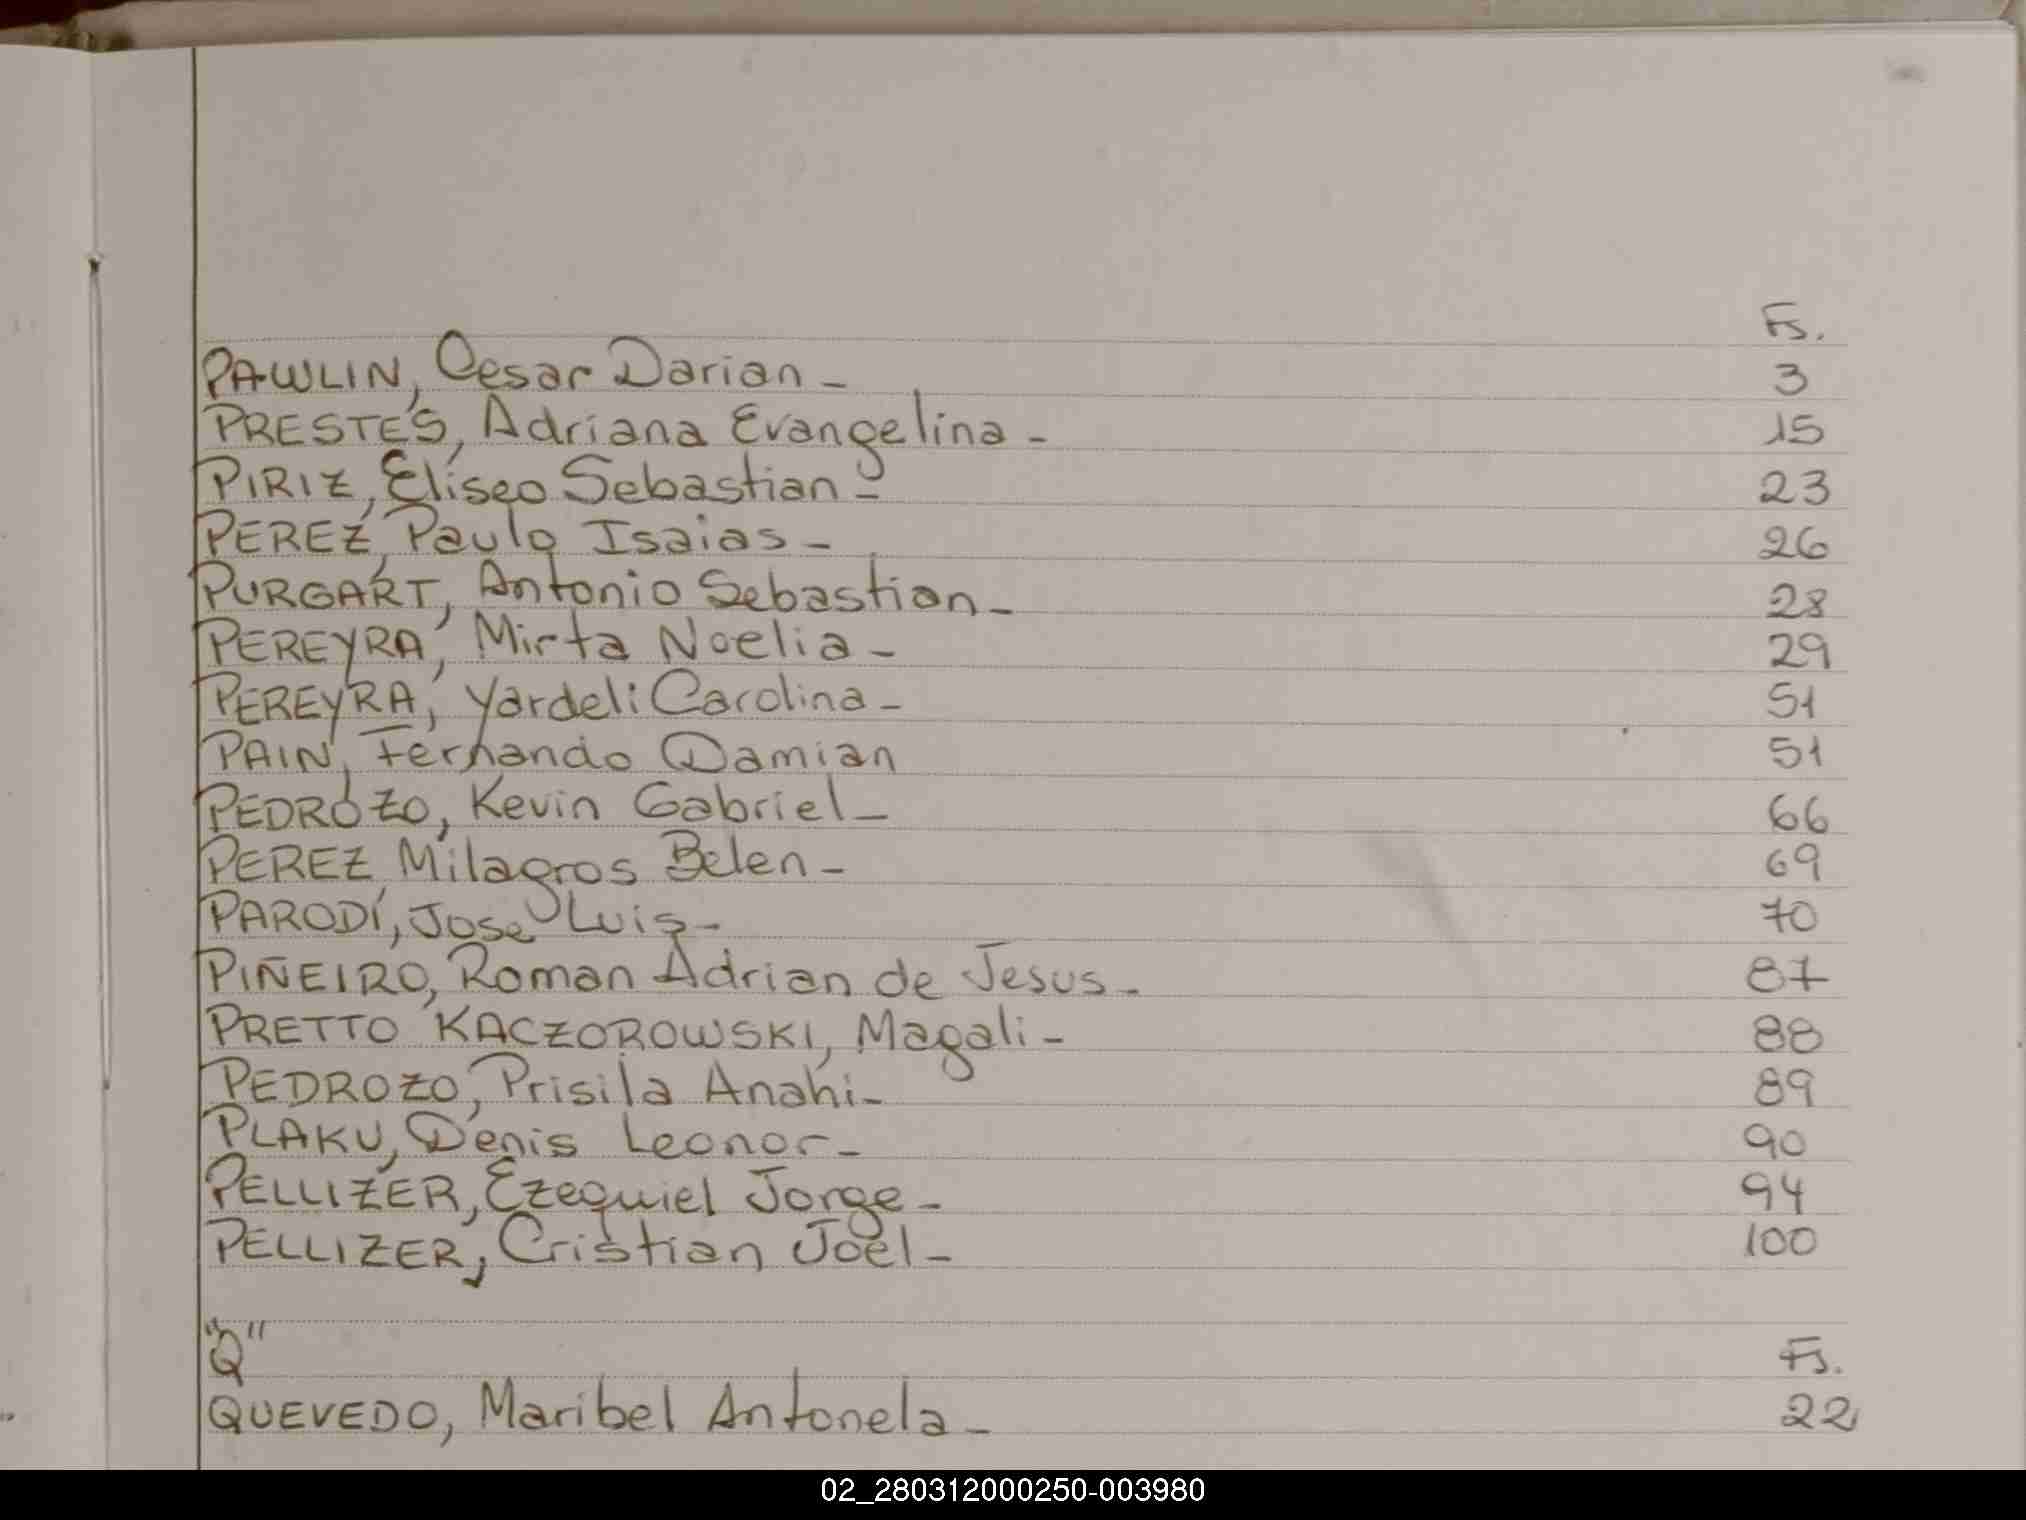 Fs.
PAWLIN, Cesar Darian - 3
PRESTES, Adriana Evangelina - 15
PIRIZ, Eliseo Sebastian - 23
PEREZ, Paulo Isaias - 26
PURGART, Antonio Sebastian - 28
PEREYRA, Mirta Noelia - 29
PEREYRA, Yardeli Carolina - 51
PAIN, Fernando Damian 51
PEDROZO, Kevin Gabriel - 66
PEREZ, Milagros Belen - 69
PARODI, Jose Luis - 70
PIÑEIRO, Roman Adrian de Jesus - 87
PRETTO KACZOROWSKI, Magali - 88
PEDROZO, Prisila Anahi - 89
PLAKU, Denis Leonor - 90
PELLIZER, Ezequiel Jorge - 94
PELLIZER, Cristian Joel - 100
"Q" Fs.
QUEVEDO, Maribel Antonela - 22
02_280312000250-003980